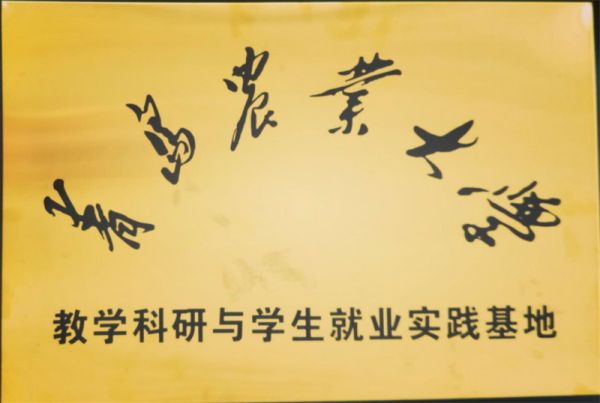 青岛農業大學
教学科研与学生就业实践基地